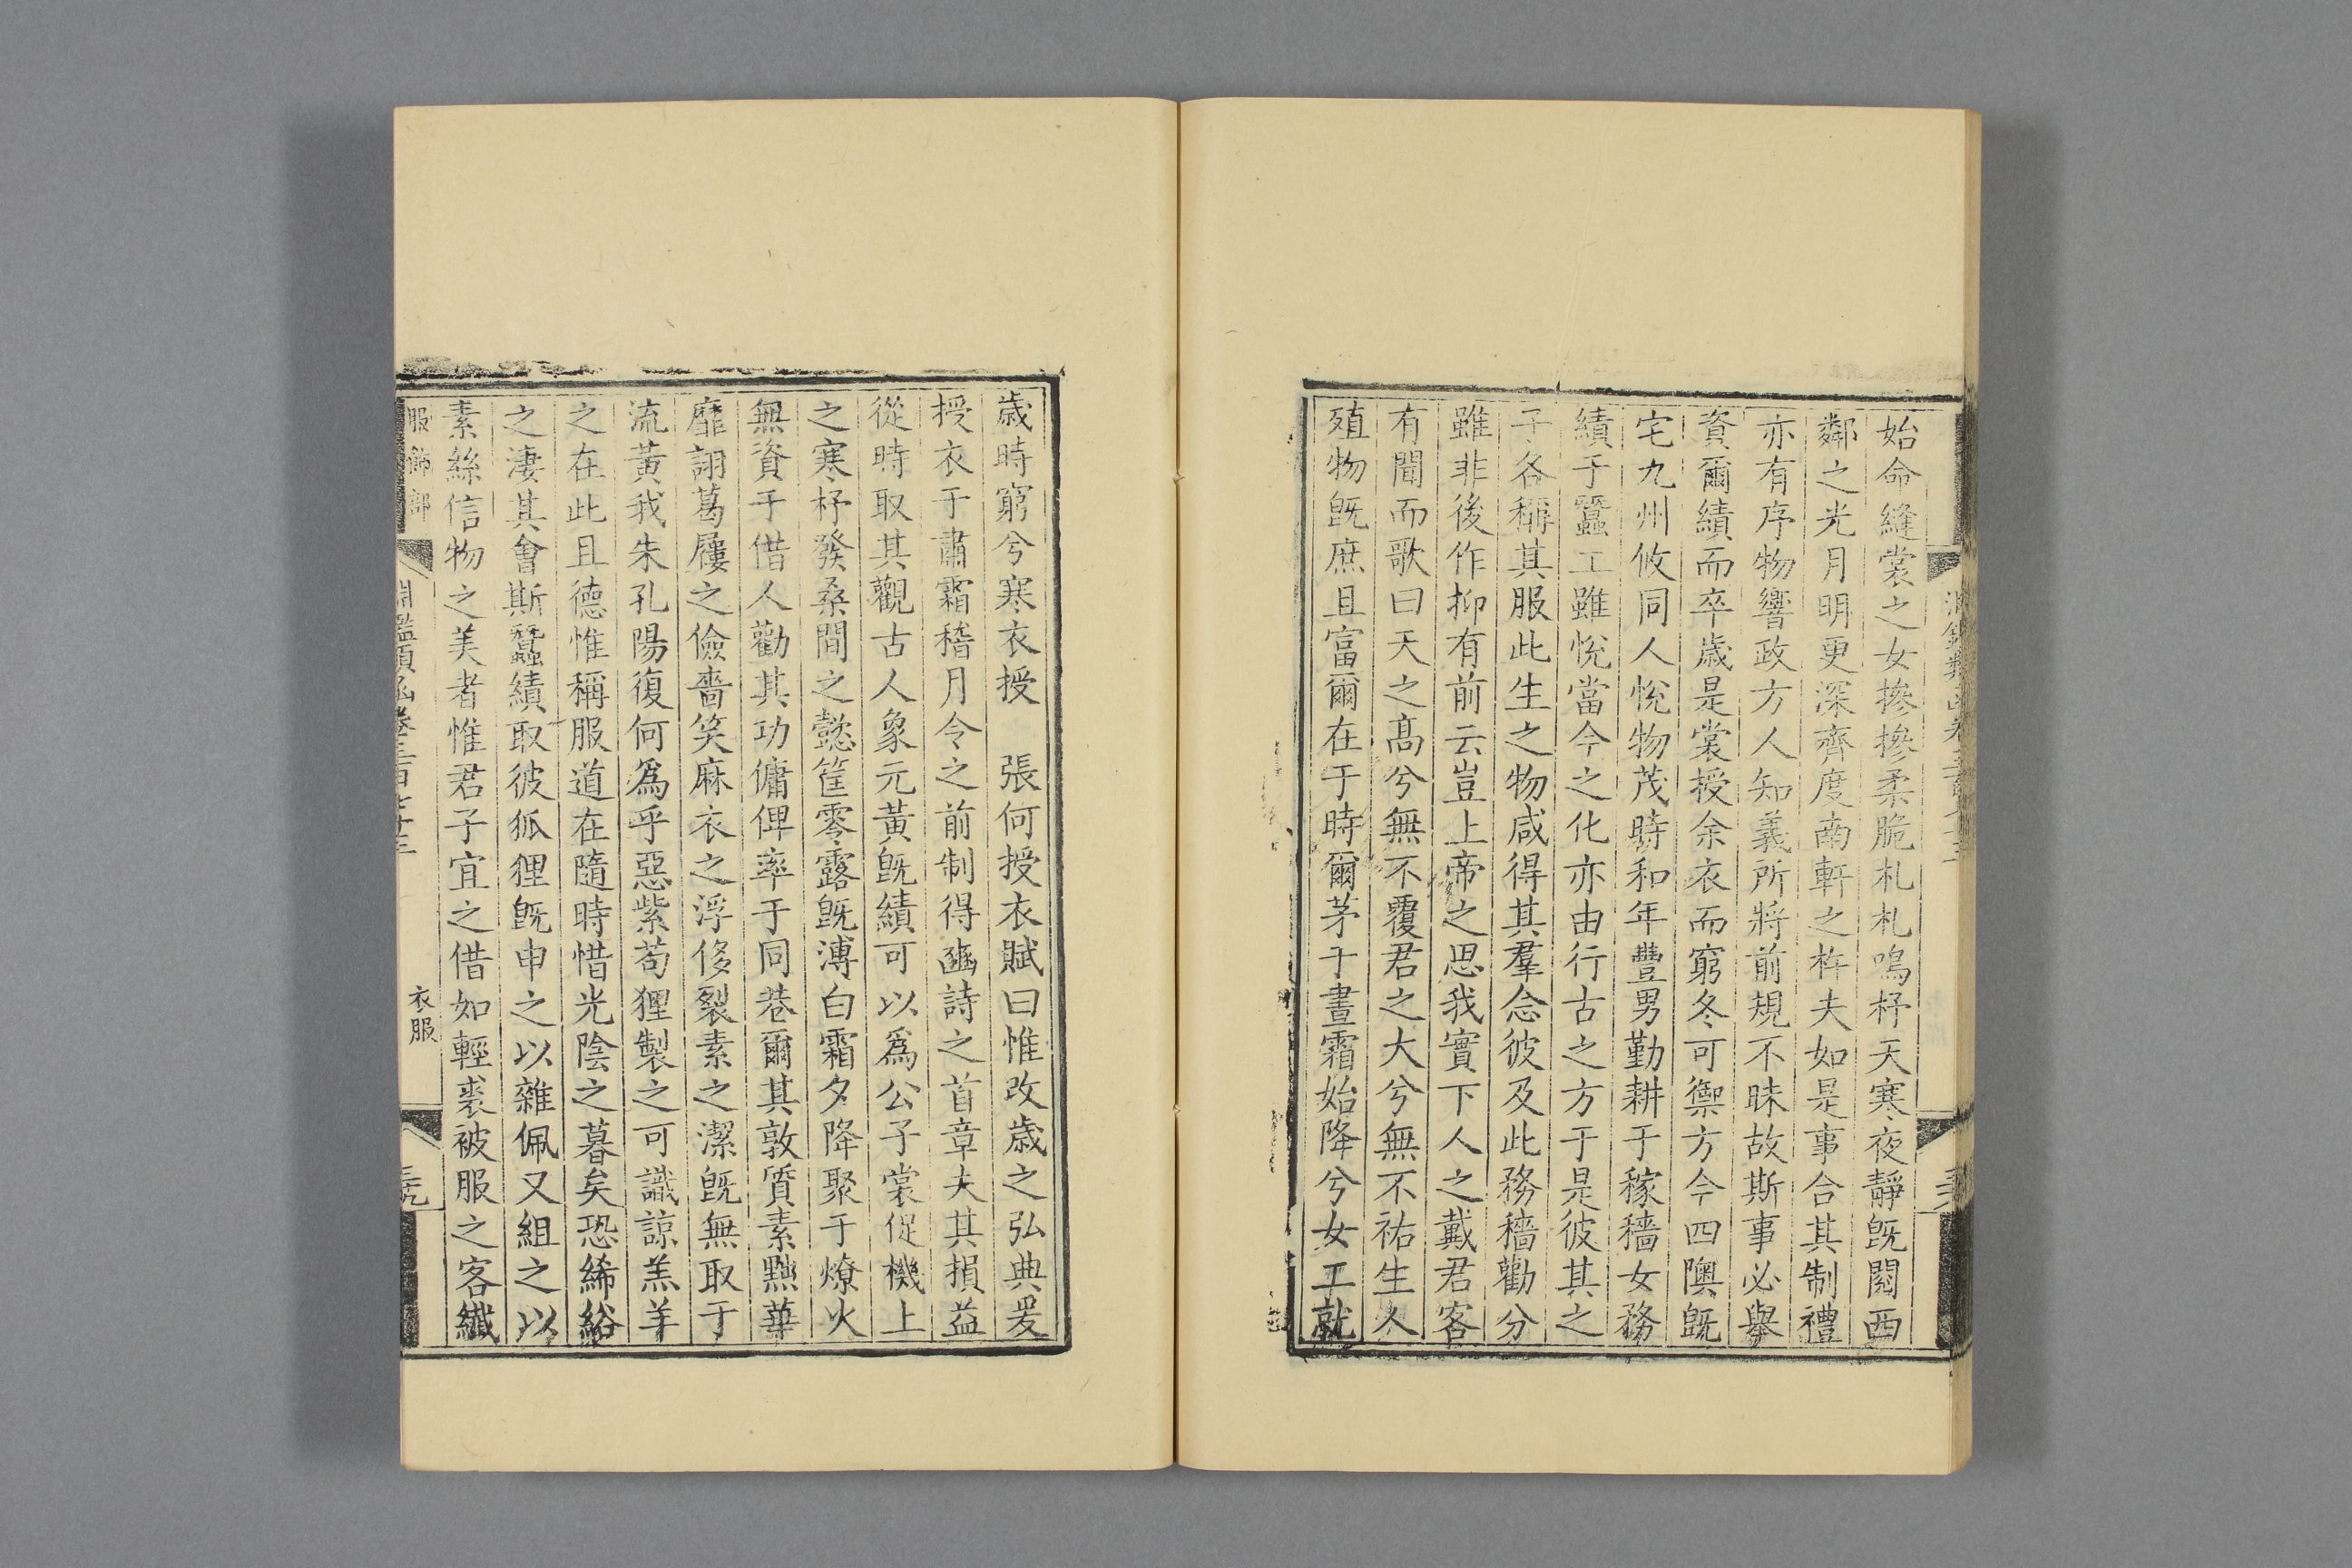 始命縫裳之女摻摻柔脆札札鳴杼天寒夜靜既閱西
鄰之光月明更深齊度南軒之杵夫如是事合其制禮
亦有序物響政方人知義所將前規不昧故斯事必舉
資爾績而卒歲是裳授余衣而窮冬可禦方今四隩既
宅九州攸同人悅物茂時和年豐男勤耕于稼穡女務
績于蠶工雖悅當今之化亦由行古之方于是彼其之
子各稱其服此生之物咸得其羣念彼及此務穡勸分
雖非後作抑有前云豈上帝之思我實下人之戴君客
有聞而歌曰天之高兮無不覆君之大兮無不祐生人
殖物既庶且富爾在于時爾茅于晝霜始降兮女工就
歲時窮兮寒衣授　張何授衣賦曰惟改歲之弘典爰
授衣于肅霜稽月令之前制得豳詩之首章夫其損益
從時取其觀古人象元黃既績可以為公子裳促機上
之寒杼發桑間之懿筐零露既漙白霜夕降聚于燎火
無資于借人勸其功傭俾率于同巷爾其敦質素黜華
靡詡葛屨之儉嗇笑麻衣之浮侈裂素之潔既無取于
流黃我朱孔陽復何為乎惡紫苟狸製之可識諒羔羊
之在此且德惟稱服道在隨時惜光陰之暮矣恐絺綌
之淒其會斯蠶績取彼狐狸既申之以雜佩又組之以
素絲信物之美者惟君子宜之借如輕裘被服之客纖
服飾部
淵鑑類函卷三百七十三
衣服
三九